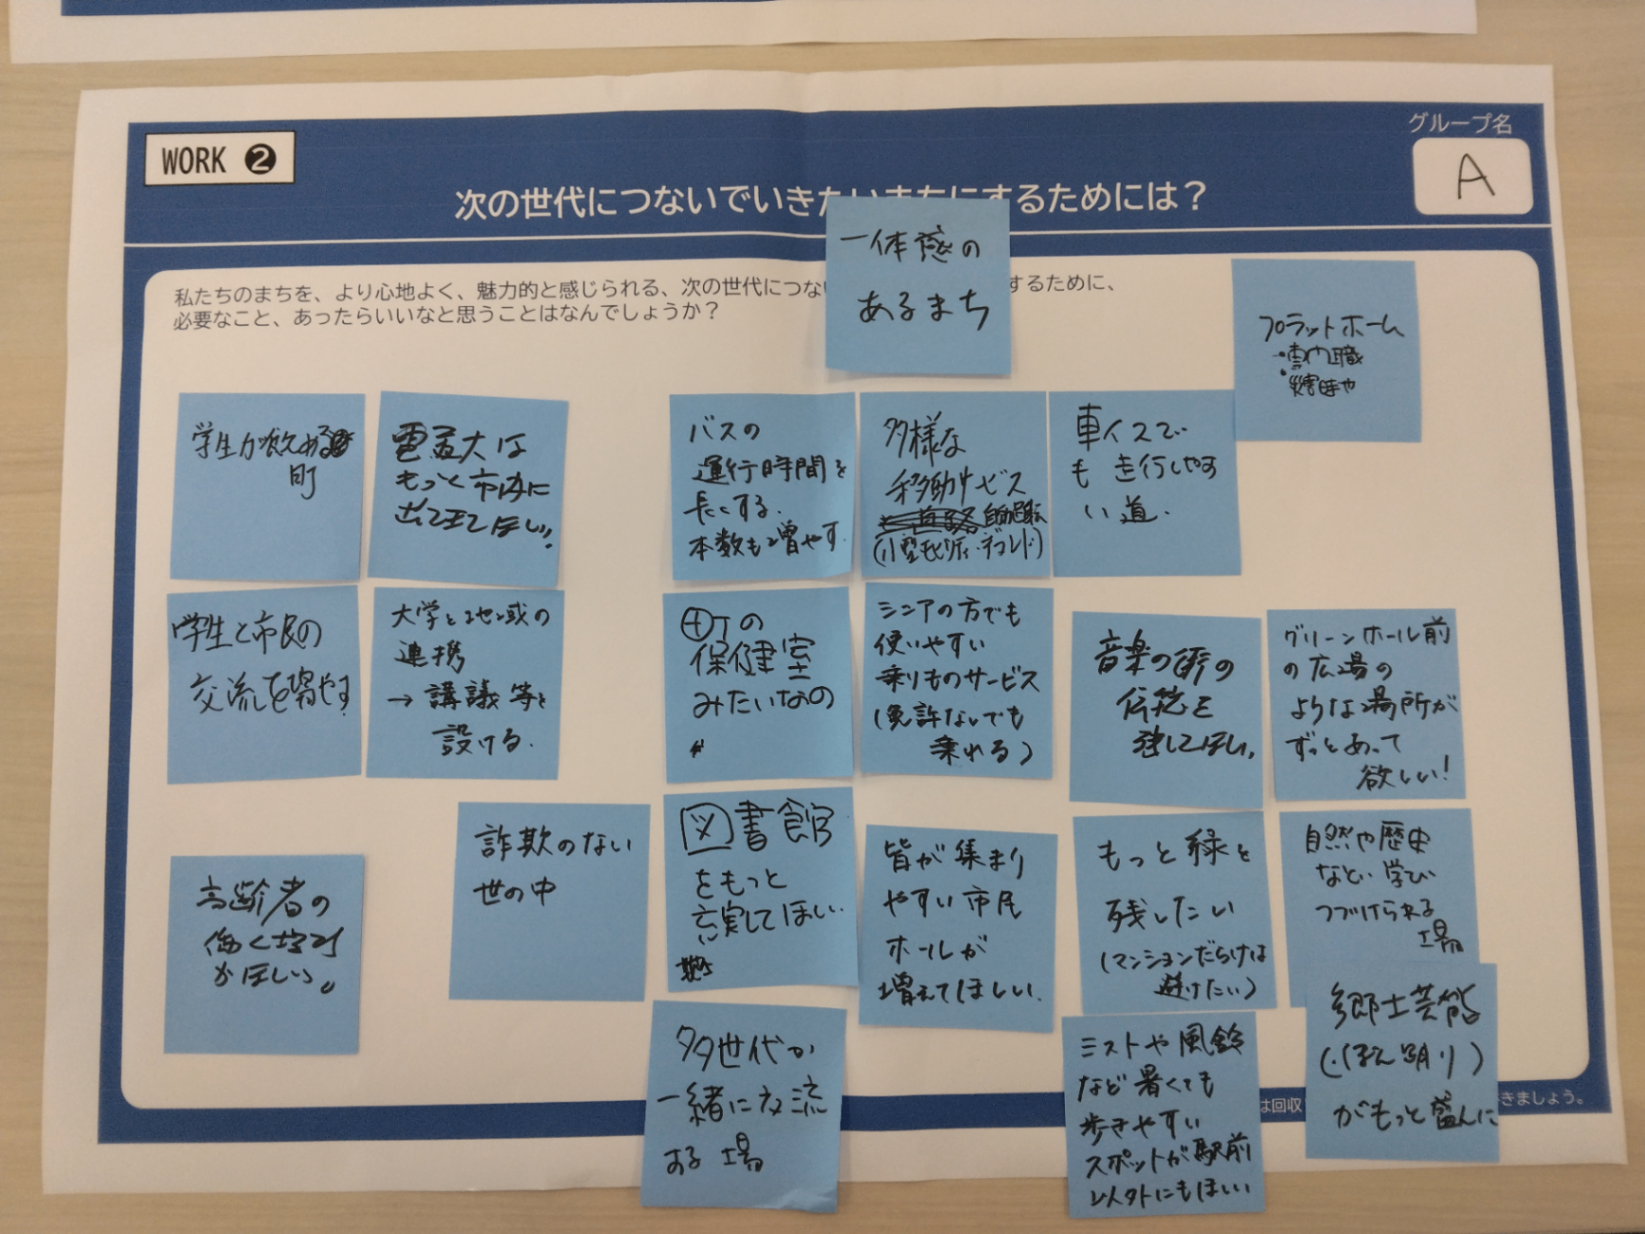 グループ名
WORK ❷
A
次の世代につないでいきたいまちにするためには？
一体感の
あるまち
私たちのまちを、より心地よく、魅力的と感じられる、次の世代につな
するために、
必要なこと、あったらいいなと思うことはなんでしょうか？
プラットホーム
学生が
町
電通大は
もっと市内に
出て来てほしい!
バスの
運行時間を
長くする.
本数も増やす.
多様な
移動サービス
車イスで
も走行しやす
い道.
学生と市民の
交流を増やす
大学と地域の
連携
→講議等を
設ける.
町の
保健室
みたいなの
が
シニアの方でも
使いやすい
乗りものサービス
(免許ないでも
乗れる)
音楽の街の
伝統を
残してほしい。
グリーンホール前
の広場の
ような場所が
ずっとあって
欲しい!
高齢者の
働く場所
がほしい。
詐欺のない
世の中
図書館
をもっと
充実してほしい.
皆が集まり
やすい市民
ホールが
増えてほしい.
もっと緑を
残したい
(マンションだらけは
避けたい)
自然や歴史
など、学び
つづけられる
場
多世代が
一緒に交流
する場
ミストや風鈴
など暑くても
歩きやすい
スポットが駅前
以外にもほしい
郷土芸能
がもっと盛んに
は回収
きましょう。